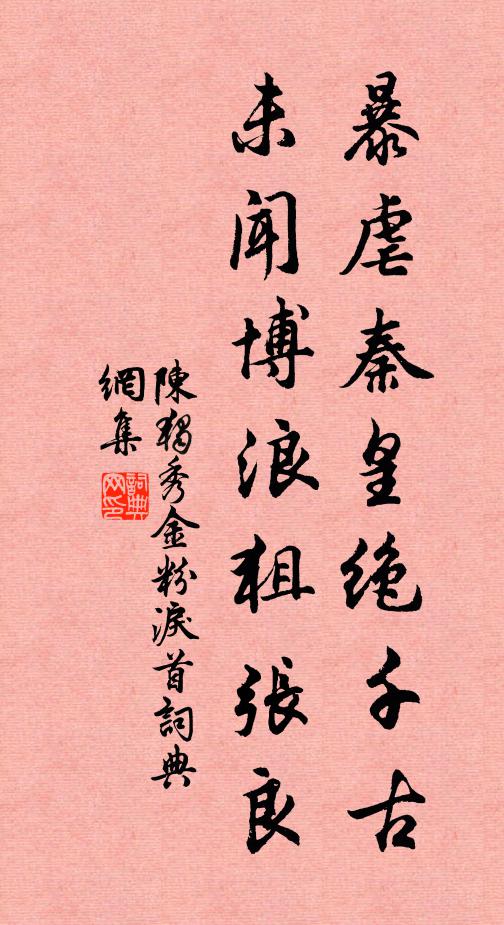 暴虐秦皇絶千古
未闻博浪狙張良
陳獨秀金粉淚首詞典
網集
詞典网印